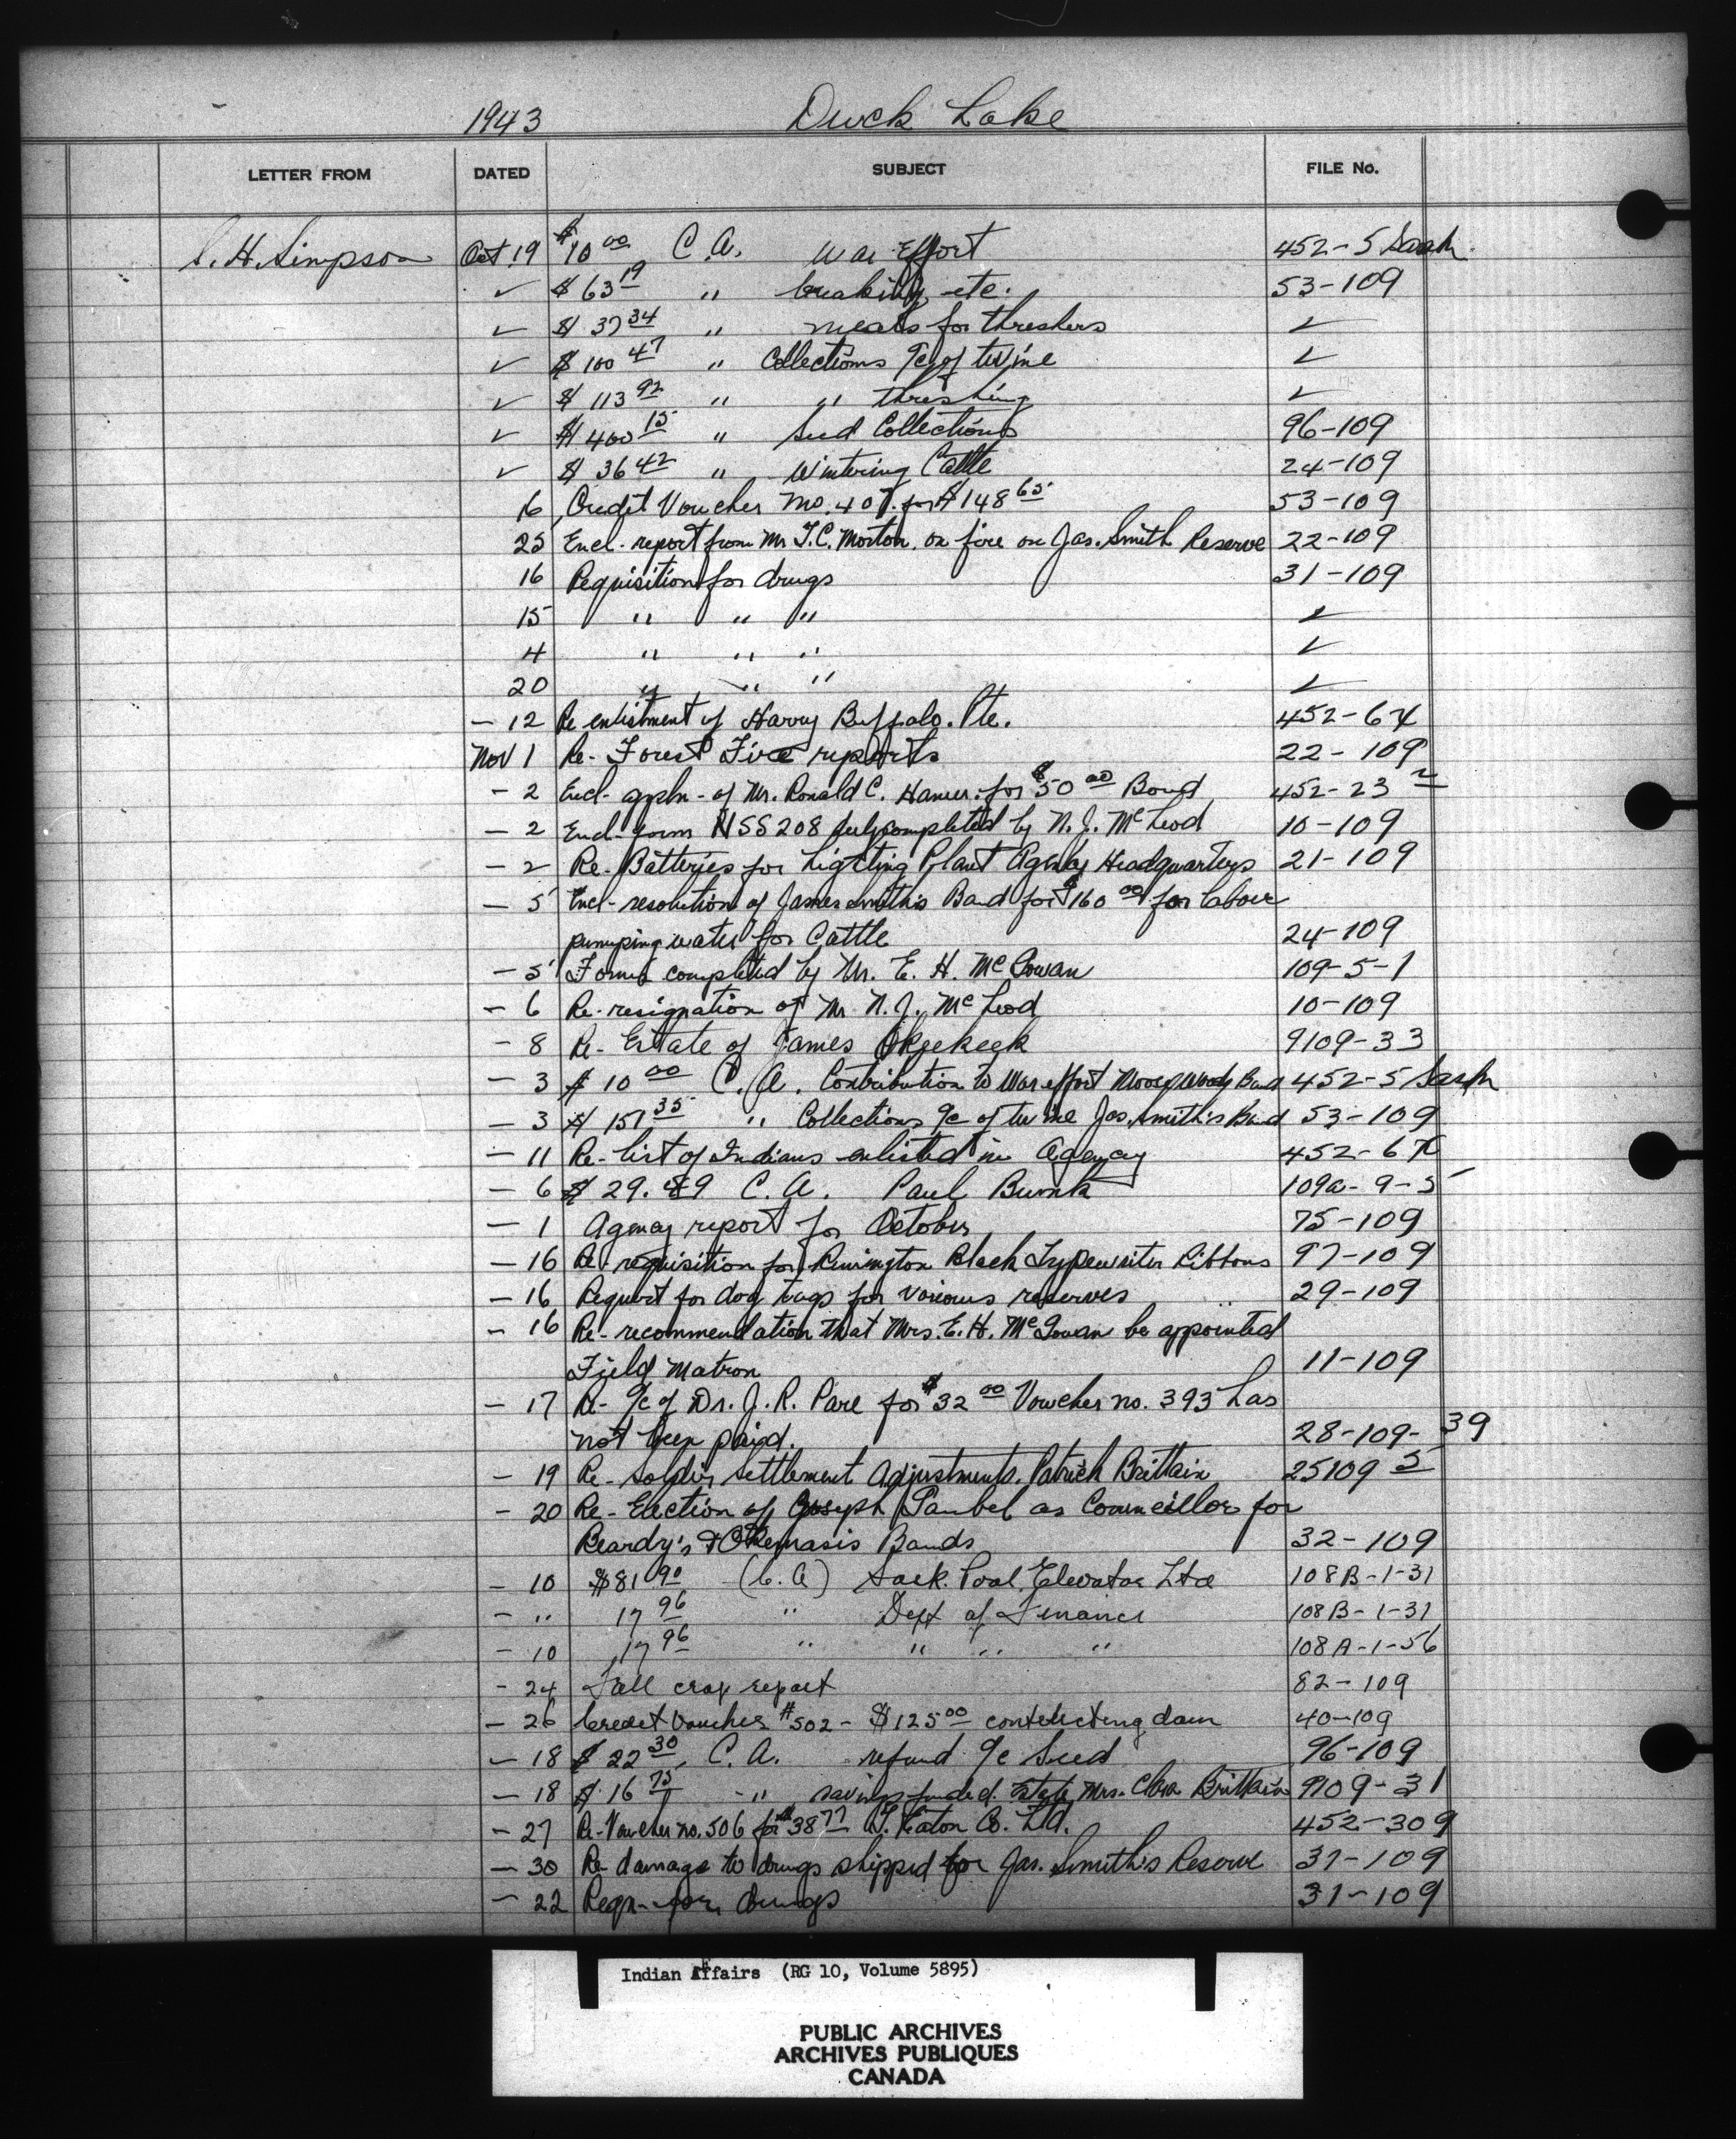 1943 Duck Lake
LETTER FROM DATED SUBJECT FILE No.
S. H. Simpson Oct 19 $10.00 C.A. War Effort 452-5 Sask.
✓ $63.19 " breaking, etc. 53-109
✓ $37.34 " meals for threshers ✓
✓ $100.47 " Collections a/c of twine ✓
✓ $113.92 " " threshing ✓
✓ $400.15 " Seed Collections 96-109
✓ $36.42 " Wintering Cattle 24-109
16 Credit Voucher no. 407. for $148.65 53-109
25 Encl. report from Mr T.C. Morton, on fire on Jas. Smith Reserve 22-109
16 Requisition for drugs 31-109
15 " " " ✓
4 " " " ✓
20 " " " ✓
- 12 Re enlistment of Harry Buffalo. Pte. 452-6
Nov 1 Re- Forest Fire reports 22-109
- 2 Encl- appln- of Mr. Ronald C. Hamer. for $50.00 Bond 452-23
- 2 Encl- form NSS 208 duly completed by N. J. McLeod 10-109
- 2 Re- Batteries for Lighting Plant Agency Headquarters 21-109
- 5 Encl- resolution of James Smith's Band for $160.00 for labour
pumping water for Cattle 24-109
- 5 Forms completed by Mr. E. H. McGowan 109-5-1
- 6 Re- resignation of Mr. N. J. McLeod 10-109
- 8 Re- Estate of James 9109-33
- 3 $10.00 C. A. Contribution to War effort Band 452-5 Sask
- 3 $151.35 " Collections a/c of twine Jas. Smith's Band 53-109
- 11 Re- list of Indians enlisted in Agency 452-6
- 6 $29. C.A. Paul 109a-9-5
- 1 Agency report for October 75-109
- 16 Re- requisition for Remington Black Typewriter Ribbons 97-109
- 16 Request for dog tags for various reserves 29-109
- 16 Re- recommendation that Mrs. E. H. McGowan be appointed
Field Matron 11-109
- 17 Re- a/c of Dr. J. R. Pare for $32.00 Voucher no. 393 has
not been paid. 28-109-39
- 19 Re- Soldier Settlement Adjustments, Patrick Brittain 25109-5
- 20 Re- Election of Joseph as Councillor for
Beardy's & Okemasis Bands 32-109
- 10 $81.90 (C.A) Sask. Pool Elevator Ltd 108B-1-31
- " 17.96 " Dept of Finance 108B-1-31
- 10 17.96 " " " " 108A-1-56
- 24 Fall crop report 82-109
- 26 Credit Voucher #502 - $125.00 dam 40-109
- 18 $22.30 C.A. refund a/c Seed 96-109
- 18 $16.75 " savings funded. Estate Mrs. Clara Brittain 9109-31
- 27 Re- Voucher no. 506 for $38.77 T. Eaton Co. Ltd. 452-309
- 30 Re damage to drugs shipped for Jas. Smith's Reserve 31-109
- 22 Reqn- for drugs 31-109
Indian Affairs (RG 10, Volume 5895)
PUBLIC ARCHIVES
ARCHIVES PUBLIQUES
CANADA